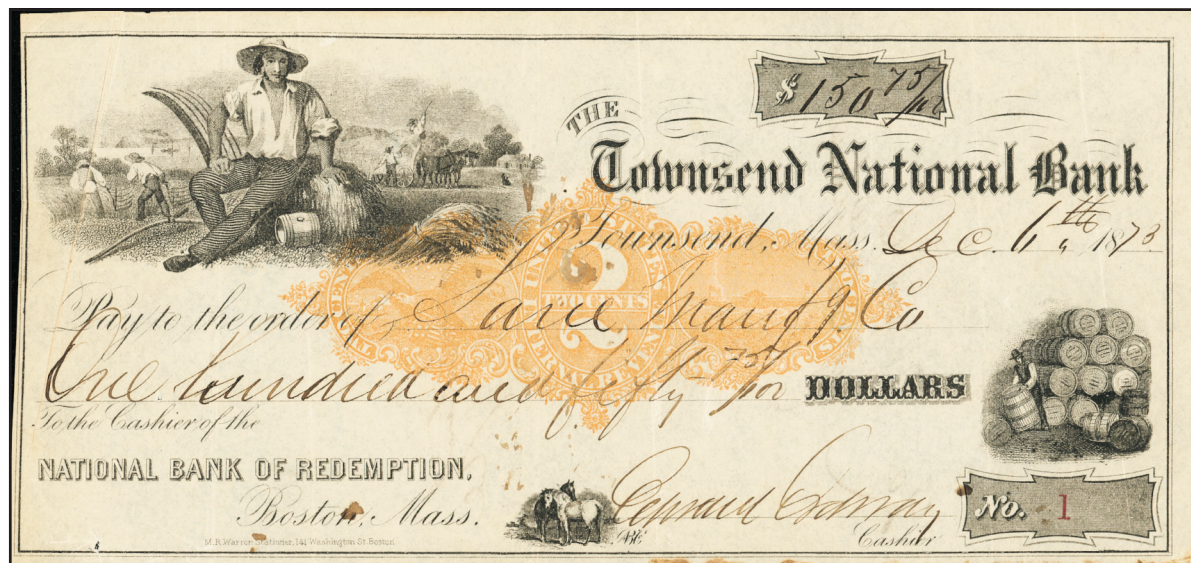 $150 75/100
THE
Townsend National Bank
Townsend, Mass. Dec. 6th 1873
2
TWO CENTS
Pay to the order of Lane Manufg. Co
One hundred and fifty 75/100 DOLLARS
To the Cashier of the
NATIONAL BANK OF REDEMPTION,
Boston, Mass.
Edward Ordway
Cashier
No. 1
M.R. Warren Stationer, 141 Washington St. Boston